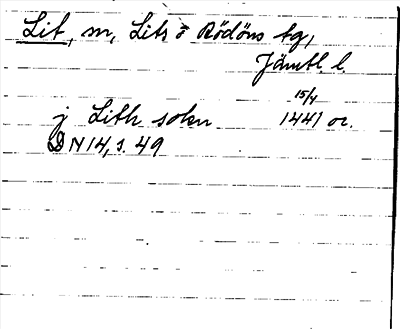 Lit, m, Lits o Rödöns tg,
Jämtl. l.
15/4
j Lith sokn 1441 or.
DN 14, s. 49